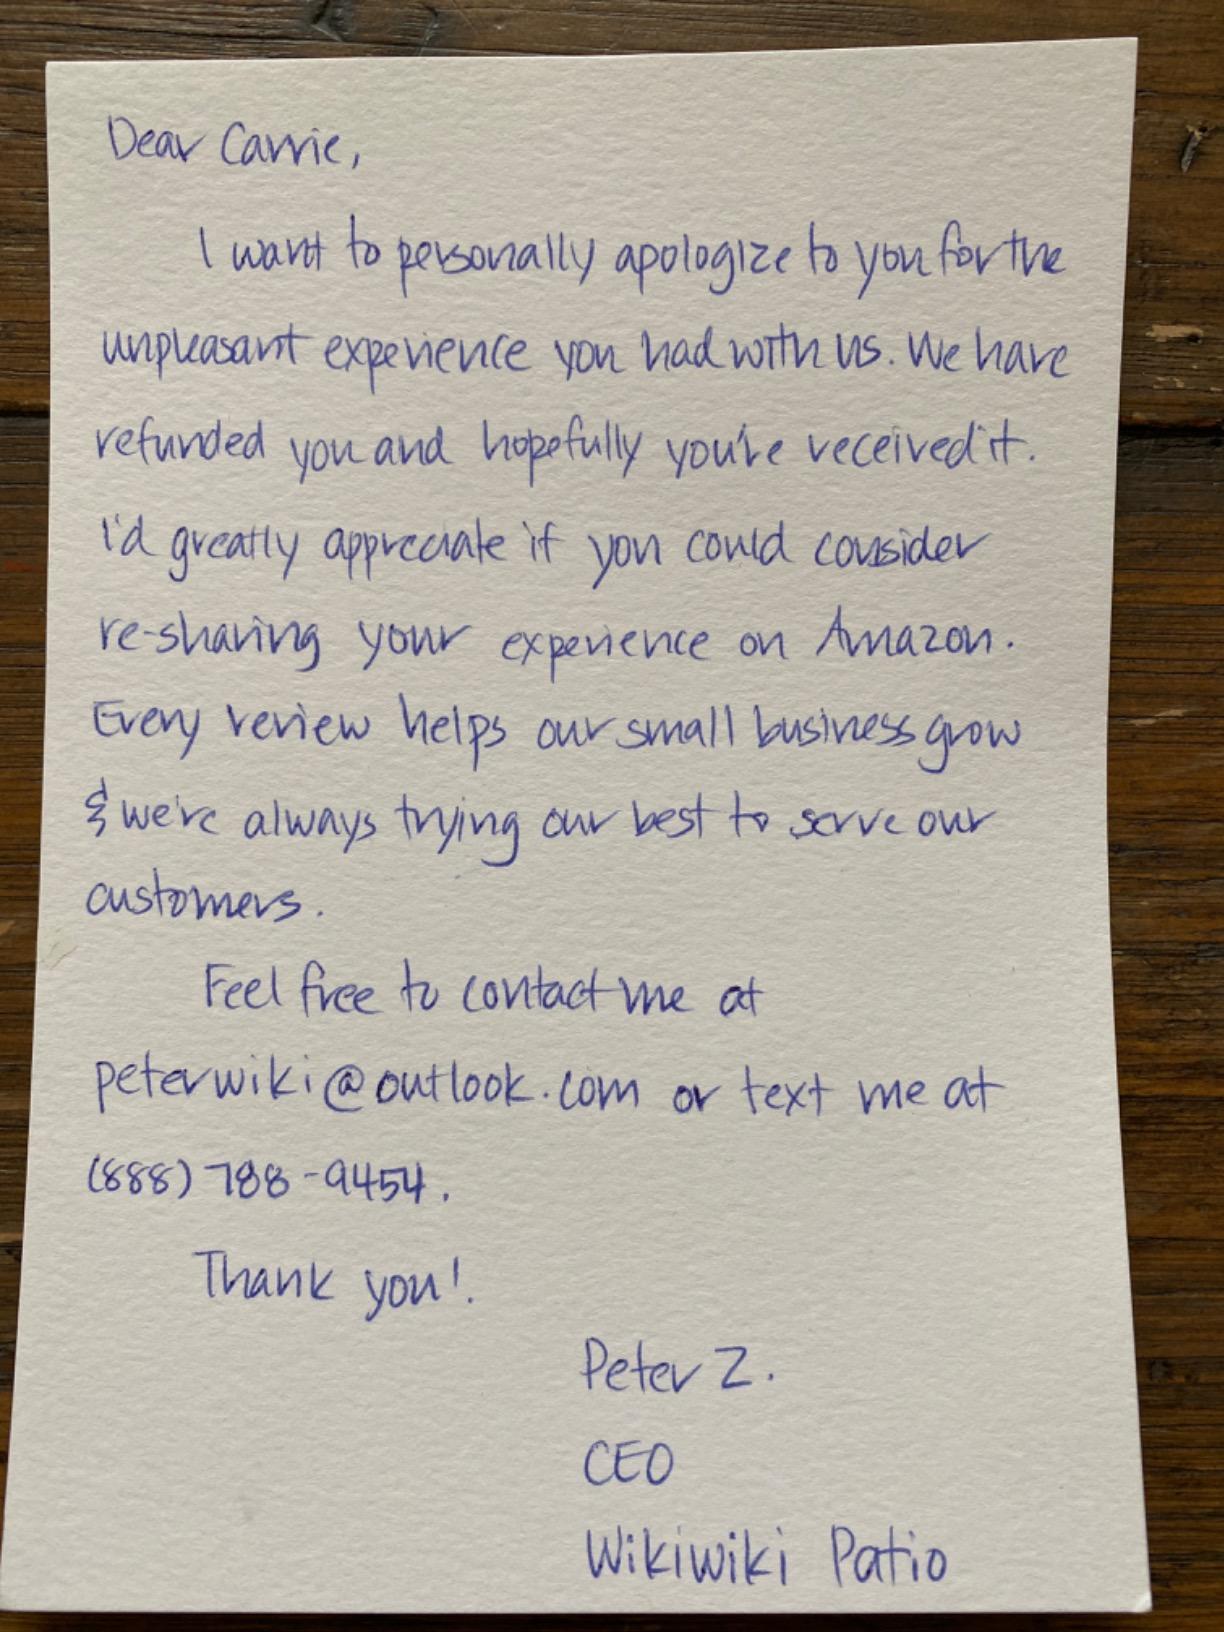 Dear Carrie,
I want to personally apologize to you for the
unpleasant experience you had with us. We have
refunded you and hopefully you've received it.
I'd greatly appreciate if you could consider
re-sharing your experience on Amazon.
Every review helps our small business grow
& we're always trying our best to serve our
customers.
Feel free to contact me at
peterwiki@outlook.com or text me at
(888) 788-9454.
Thank you!
Peter Z.
CEO
Wikiwiki Patio